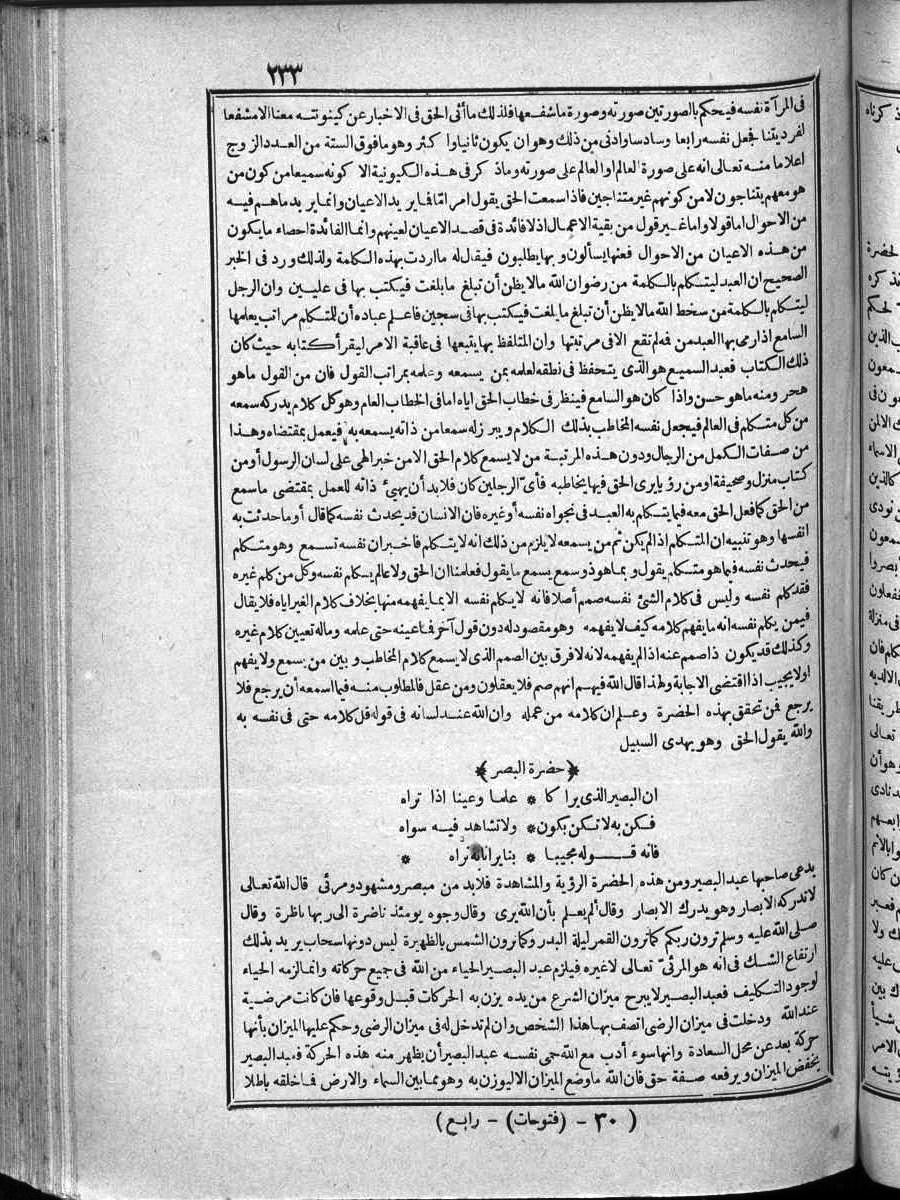 ٢٣٣
فى المرآة نفسه فيحكم بالصورتين صورته وصورة ما شفعها فلذلك ما أنى الحق فى الاخبار عن كينونتسه معنا الا مشفعا
لفرديتنا فجعل نفسه رابعا وسادسا وأدنى من ذلك وهو ان يكون ثانيا وا كثر وهو ما فوق الستة من العدد الزوج
اعلاما منه تعالى انه على صورة العالم او العالم على صورته وما ذكر فى هذه الكيونية الا كونه سميعا من كون من
هو معهم يتناجون لا من كونهم غير متناجين فاذا سمعت الحق يقول امرا مّا فما يريد الاعيان وانما يريد ما هم فيه
من الاحوال اما قولا واما غير قول من بقية الاعمال اذ لا فائدة فى قصد الاعيان لعينهم وانما الفائدة احصاء ما يكون
من هذه الاعيان من الاحوال فعنها يسألون وبها يطلبون فيقال له ما اردت بهذه الكلمة ولذلك ورد فى الخبر
الصحيح ان العبد ليتكلم بالكلمة من رضوان الله ما لا يظن أن تبلغ ما بلغت فيكتب بها فى عليين وان الرجل
ليتكلم بالكلمة من سخط الله ما لا يظن أن تبلغ ما بلغت فيكتب بها فى سجين فاعلم عباده أن للمتكلم مراتب يعلمها
السامع اذا رمى بها العبد من فه لم تقع الا فى مرتبتها وان المتلفظ بها يتبعها فى عاقبة الامر ليقرأ كتابه حيث كان
ذلك الكتاب فعبد السميع هو الذى يتحفظ فى نطقه لعلمه بمن يسمعه وعلمه بمراتب القول فان من القول ما هو
هجر ومنه ما هو حسن واذا كان هو السامع فينظر فى خطاب الحق اياه اما فى الخطاب العام وهو كل كلام يدركه سمعه
من كل متكلم فى العالم فيجعل نفسه المخاطب بذلك الكلام ويبرز له سمعا من ذاته يسمعه به فيعمل بمقتضاه وهذا
من صفات الكمل من الرجال ودون هذه المرتبة من لا يسمع كلام الحق الا من خبر الهى على لسان الرسول أو من
كتاب منزل وصحيفة او من رؤيا يرى الحق فيها يخاطبه فأىّ الرجلين كان فلا بد أن يهيئ ذاته للعمل بمقتضى ما سمع
من الحق كما فعل الحق معه فيما يتكلم به العبد فى نجواه نفسه أو غيره فان الانسان قد يحدث نفسه كما قال أو ما حدثت به
انفسها وهو تنبيه ان المتكلم اذا لم يكن ثم من يسمعه لا يلزم من ذلك انه لا يتكلم فاخبر ان نفسه تسمع وهو متكلم
فيحدث نفسه فيما هو متكلم يقول وبما هو ذو سمع يسمع ما يقول فعلمنا ان الحق ولا عالم يكلم نفسه وكل من كلم غيره
فقد كلم نفسه وليس فى كلام الشئ نفسه صمم أصلا فانه لا يكلم نفسه الا بما يفهمه منها بخلاف كلام الغير اياه فلا يقال
فيمن يكلم نفسه انه ما يفهم كلامه كيف لا يفهمه وهو مقصود له دون قول آخر فما عينه حتى علمه وما له تعيين كلام غيره
وكذلك قد يكون ذا صمم عنه اذا لم يفهمه لانه لا فرق بين الصمم الذى لا يسمع كلام المخاطب وبين من يسمع ولا يفهم
اولا يجيب اذا اقتضى الاجابة ولهذا قال الله فيهم انهم صم فلا يعقلون ومن عقل فالمطلوب منه فيما اسمعه أن يرجع فلا
يرجع فمن تحقق بهذه الحضرة وعلم ان كلامه من عمله وان الله عند لسانه فى قوله قل كلامه حتى فى نفسه به
والله يقول الحق وهو يهدى السبيل
﴿حضرة البصر﴾
ان البصير الذى يراكا * علما وعينا اذا تراه
فكن به لا تكن بكون * ولا تشاهد فيه سواه
فانه قوله مجيبا * بنا يرانا به نراه *
يدعى صاحبها عبد البصير ومن هذه الحضرة الرؤية والمشاهدة فلا بد من مبصر ومشهود ومرئى قال الله تعالى
لا تدركه الابصار وهو يدرك الابصار وقال ألم يعلم بأن الله يرى وقال وجوه يومئذ ناضرة الى ربها ناظرة وقال
صلى الله عليه وسلم ترون ربكم كما ترون القمر ليلة البدر وكما ترون الشمس بالظهيرة ليس دونها سحاب يريد بذلك
ارتفاع الشك فى انه هو المرئىّ تعالى لا غيره فيلزم عبد البصير الحياء من الله فى جميع حركاته وانما لزمه الحياء
لوجود التكليف فعبد البصير لا يبرح ميزان الشرع من يده يزن به الحركات قبل وقوعها فان كانت مرضية
عند الله ودخلت فى ميزان الرضى اتصف بها هذا الشخص وان لم تدخل له فى ميزان الرضى وحكم عليها الميزان بأنها
حركة بعد عن محل السعادة وانها سوء أدب مع الله حمى نفسه عبد البصير أن يظهر منه هذه الحركة فعبد البصير
يخفض الميزان ويرفعه صفة حق فان الله ما وضع الميزان الا ليوزن به وهو مما بين السماء والارض فما خلقه باطلا
( ٣٠ - (فتوحات) - رابع )